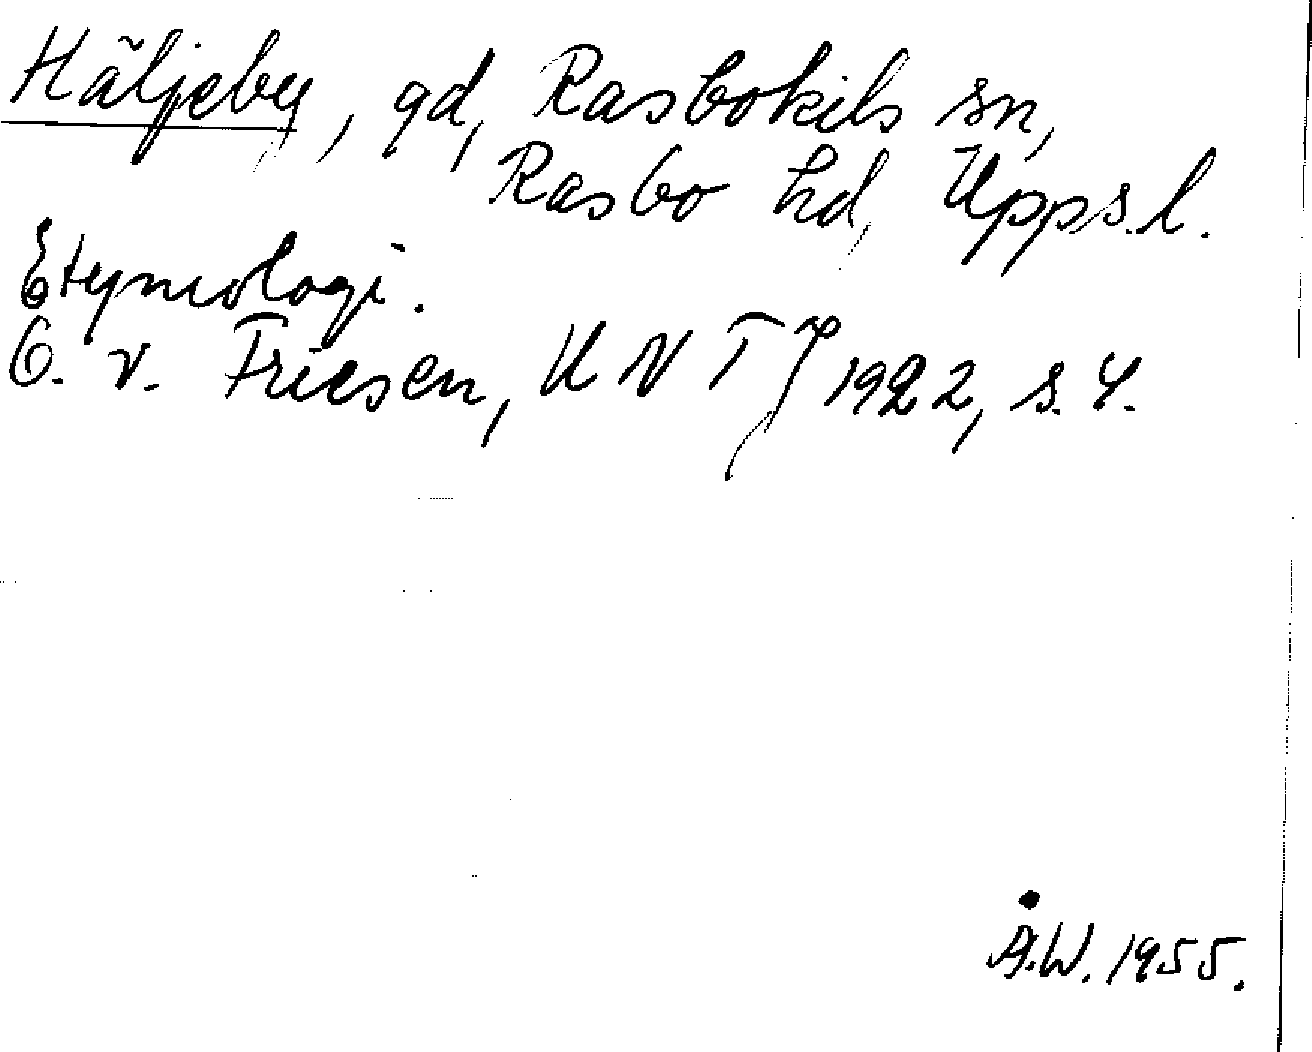 Häljeby, gd, Rasbokils sn,
Rasbo hd, Upps.l.
Etymologi.
O. v. Friesen, UNT 1922, s. 4.
Å.W. 1955.